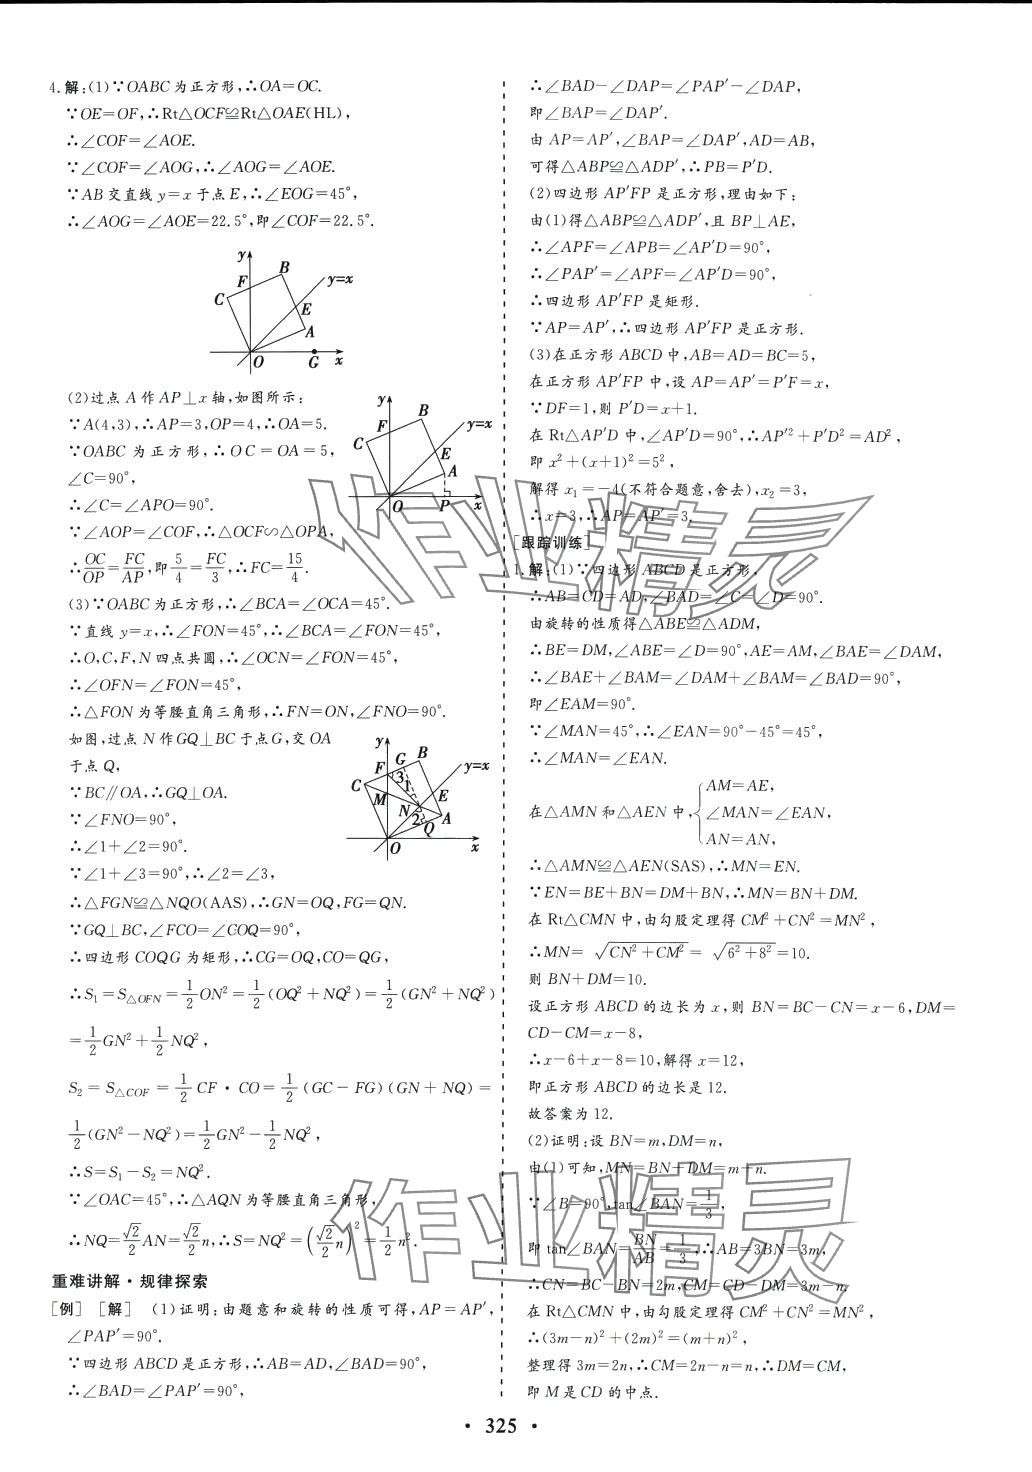 4.解:(1)∵OABC为正方形,∴OA=OC.
∵OE=OF,∴Rt△OCF≌Rt△OAE(HL),
∴∠COF=∠AOE.
∵∠COF=∠AOG,∴∠AOG=∠AOE.
∵AB交直线y=x于点E,∴∠EOG=45°,
∴∠AOG=∠AOE=22.5°,即∠COF=22.5°.
y
B
F
y=x
C
E
A
O G x
(2)过点A作AP⊥x轴,如图所示:
∵A(4,3),∴AP=3,OP=4,∴OA=5.
∵OABC为正方形,∴OC=OA=5,
∠C=90°,
∴∠C=∠APO=90°.
∵∠AOP=∠COF,∴△OCF∽△OPA,
∴OC/OP=FC/AP,即5/4=FC/3,∴FC=15/4.
y
B
F
y=x
C
E
A
O P x
(3)∵OABC为正方形,∴∠BCA=∠OCA=45°.
∵直线y=x,∴∠FON=45°,∴∠BCA=∠FON=45°,
∴O,C,F,N四点共圆,∴∠OCN=∠FON=45°,
∴∠OFN=∠FON=45°,
∴△FON为等腰直角三角形,∴FN=ON,∠FNO=90°.
如图,过点N作GQ⊥BC于点G,交OA
于点Q,
∵BC∥OA,∴GQ⊥OA.
∵∠FNO=90°,
∴∠1+∠2=90°.
∵∠1+∠3=90°,∴∠2=∠3,
y
G B
F 3
y=x
C
1
M
E
N
A
2 Q
O x
∴△FGN≌△NQO(AAS),∴GN=OQ,FG=QN.
∵GQ⊥BC,∠FCO=∠COQ=90°,
∴四边形COQG为矩形,∴CG=OQ,CO=QG,
∴S₁=S△OFN=1/2ON²=1/2(OQ²+NQ²)=1/2(GN²+NQ²)
=1/2GN²+1/2NQ²,
S₂=S△COF=1/2CF·CO=1/2(GC-FG)(GN+NQ)=
1/2(GN²-NQ²)=1/2GN²-1/2NQ²,
∴S=S₁-S₂=NQ².
∵∠OAC=45°,∴△AQN为等腰直角三角形,
∴NQ=√2/2AN=√2/2n,∴S=NQ²=(√2/2n)²=1/2n².
重难讲解·规律探索
[例] [解] (1)证明:由题意和旋转的性质可得,AP=AP′,
∠PAP′=90°.
∵四边形ABCD是正方形,∴AB=AD,∠BAD=90°,
∴∠BAD=∠PAP′=90°,
∴∠BAD-∠DAP=∠PAP′-∠DAP,
即∠BAP=∠DAP′.
由AP=AP′,∠BAP=∠DAP′,AD=AB,
可得△ABP≌△ADP′,∴PB=P′D.
(2)四边形AP′FP是正方形,理由如下:
由(1)得△ABP≌△ADP′,且BP⊥AE,
∴∠APF=∠APB=∠AP′D=90°,
∴∠PAP′=∠APF=∠AP′D=90°,
∴四边形AP′FP是矩形.
∵AP=AP′,∴四边形AP′FP是正方形.
(3)在正方形ABCD中,AB=AD=BC=5,
在正方形AP′FP中,设AP=AP′=P′F=x,
∵DF=1,则P′D=x+1.
在Rt△AP′D中,∠AP′D=90°,∴AP′²+P′D²=AD²,
即x²+(x+1)²=5²,
解得x₁=-4(不符合题意,舍去),x₂=3,
∴x=3,∴AP=AP′=3.
[跟踪训练]
1.解:(1)∵四边形ABCD是正方形,
∴AB=CD=AD,∠BAD=∠C=∠D=90°.
由旋转的性质得△ABE≌△ADM,
∴BE=DM,∠ABE=∠D=90°,AE=AM,∠BAE=∠DAM,
∴∠BAE+∠BAM=∠DAM+∠BAM=∠BAD=90°,
即∠EAM=90°.
∵∠MAN=45°,∴∠EAN=90°-45°=45°,
∴∠MAN=∠EAN.
在△AMN和△AEN中,{AM=AE,
∠MAN=∠EAN,
AN=AN,
∴△AMN≌△AEN(SAS),∴MN=EN.
∵EN=BE+BN=DM+BN,∴MN=BN+DM.
在Rt△CMN中,由勾股定理得CM²+CN²=MN²,
∴MN=√(CN²+CM²)=√(6²+8²)=10.
则BN+DM=10.
设正方形ABCD的边长为x,则BN=BC-CN=x-6,DM=
CD-CM=x-8,
∴x-6+x-8=10,解得x=12,
即正方形ABCD的边长是12.
故答案为12.
(2)证明:设BN=m,DM=n,
由(1)可知,MN=BN+DM=m+n.
∵∠B=90°,tan∠BAN=1/3,
即tan∠BAN=BN/AB=1/3,∴AB=3BN=3m,
∴CN=BC-BN=2m,CM=CD-DM=3m-n.
在Rt△CMN中,由勾股定理得CM²+CN²=MN²,
∴(3m-n)²+(2m)²=(m+n)²,
整理得3m=2n,∴CM=2n-n=n,∴DM=CM,
即M是CD的中点.
• 325 •
作业精灵
作业精灵